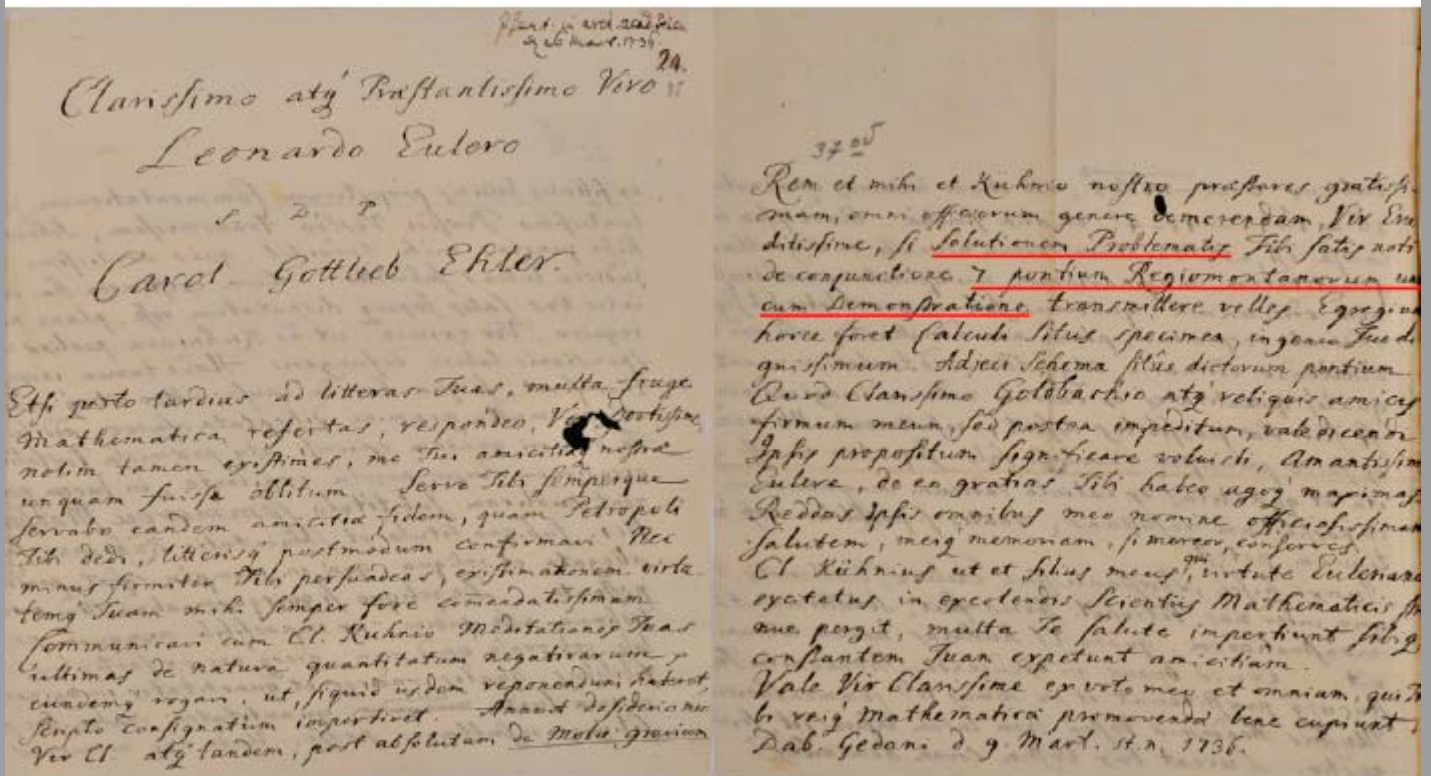 24.
Clarissimo atq́ Præstantissimo Viro
Leonardo Eulero
S. D. P.
Carol Gottlieb Ehler.
Etsi perto tardius ad litteras Tuas, multa fruge
Mathematica refertas, respondeo,
nolim tamen existimes, me Tui amicitiæq́ nostræ
unquam fuisse oblitum. Servo Tibi semperque
servabo eandem amicitiæ fidem, quam Petropoli
Tibi dedi, litterisq́ postmodum confirmavi. Nec
minus firmiter Tibi persuadeas, existimationem virtu-
temq́ Tuam mihi semper fore comendatissimam
Communicavi cum Cl. Kuhnio Meditationes Tuas
ultimas de natura quantitatum negativarum,
eundemq́ rogavi, ut, siquid iisdem reponendum haberet,
scripto consignatum impertiret. Annuit desiderio meo
Vir Cl. atq́ tandem, post absolutam de Motu gravium
37 05
Rem et mihi et Kuhnio nostro præstares gratissi-
mam, omni officiorum genere demerendam, Vir Eru
ditissime, si Solutionem Problematis Tibi satis noti
de conjunctione 7 pontium Regiomontanorum un
cum Demonstratione transmittere velles. Egregium
hocce foret Calculi Situs specimen, ingenio Tuo di
gnissimum. Adjeci Schema sitûs dictorum pontium
Quod Clarissimo Goldbachio atq́ reliquis amicis
firmum meum, sed postea impeditum, valedicendi
Ipsis propositum significare voluisti, Amantissim
Eulere, de eo gratias Tibi habeo agoq́ maximas
Reddas Ipsis omnibus meo nomine officiosissimam
salutem, meiq́ memoriam, si mereor, conserves.
Cl. Kühnius ut et filius meus, qui virtute Euleriana
excitatus in excolendis Scientiis Mathematicis stre
nue pergit, multa Te salute impertiunt sibiq́
constantem Tuam expetunt amicitiam.
Vale Vir Clarissime ex voto meo et omnium, qui Ti
bi reiq́ Mathematicæ promovendæ bene cupiunt.
Dab. Gedani d. 9. Mart. st. n. 1736.